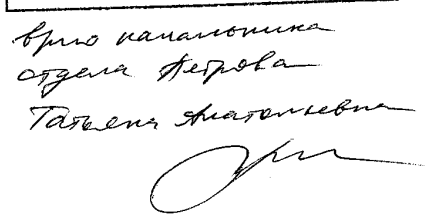 врио начальника
отдела Петрова
Татьяна Анатольевна